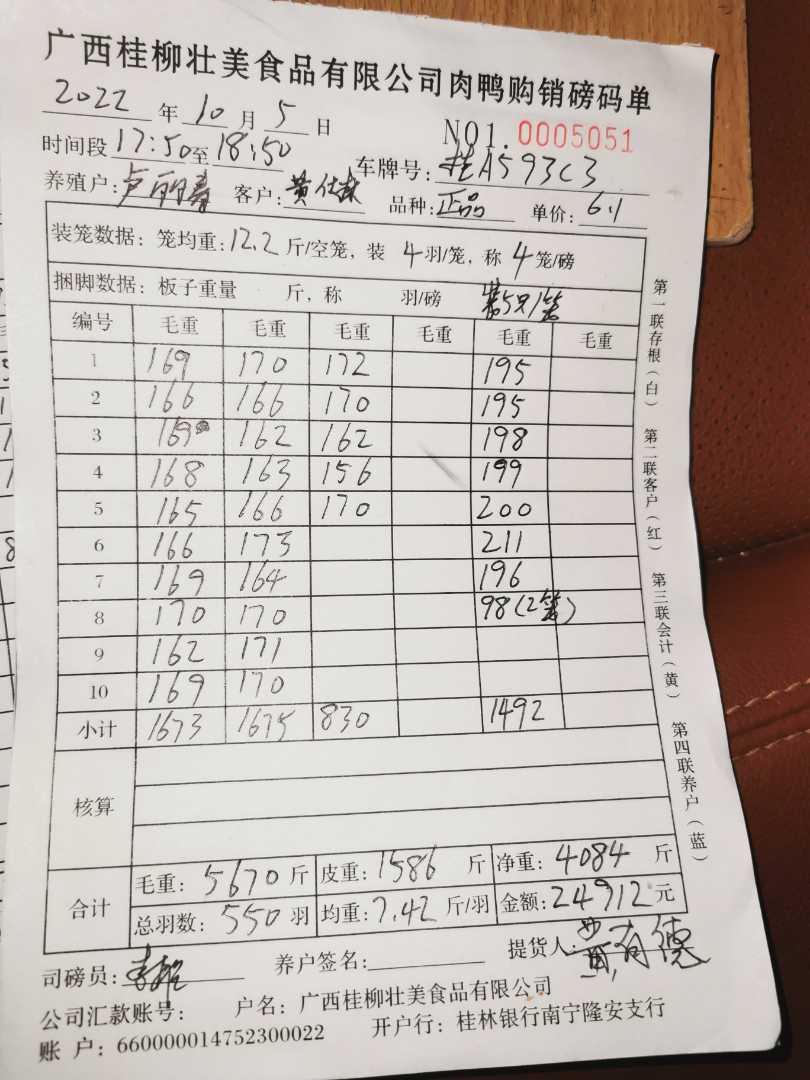 广西桂柳壮美食品有限公司肉鸭购销磅码单
2022 年 10 月 5 日 NO1. 0005051
时间段 17:50 至 18:50 车牌号: 桂A593C3
养殖户: 卢丽春 客户: 黄仕林 品种: 正品 单价: 6.1
装笼数据: 笼均重: 12.2 斤/空笼, 装 4 羽/笼, 称 4 笼/磅
捆脚数据: 板子重量 斤, 称 羽/磅 装5只/笼
编号 毛重 毛重 毛重 毛重 毛重 毛重
1 169 170 172 195
2 166 166 170 195
3 169 162 162 198
4 168 163 156 199
5 165 166 170 200
6 166 173 211
7 169 164 196
8 170 170 98(2笼)
9 162 171
10 169 170
小计 1673 1675 830 1492
核算
合计 毛重: 5670 斤 皮重: 1586 斤 净重: 4084 斤
总羽数: 550 羽 均重: 7.42 斤/羽 金额: 24912 元
司磅员: 养户签名: 提货人: 黄有德
公司汇款账号: 户名: 广西桂柳壮美食品有限公司
账 户: 660000014752300022 开户行: 桂林银行南宁隆安支行
第一联存根(白) 第二联客户(红) 第三联会计(黄) 第四联养户(蓝)